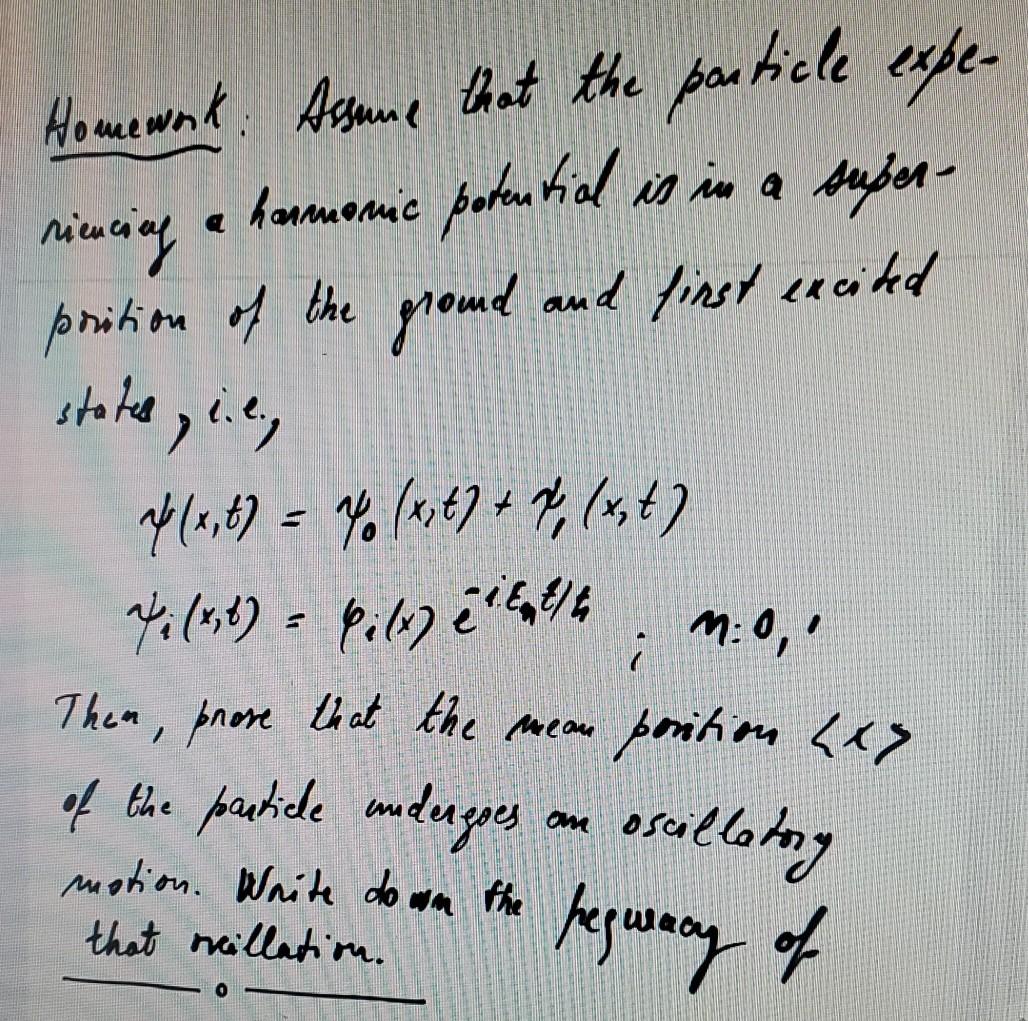 Homework: Assume that the particle expe-
riencing a harmonic potential is in a super-
position of the ground and first excited
states, i.e.,
ψ(x,t) = ψ₀(x,t) + ψ₁(x,t)
ψᵢ(x,t) = φᵢ(x) e^{-iEₙt/ħ} ; n:0,1
Then, prove that the mean position <x>
of the particle undergoes an oscillatory
motion. Write down the frequency of
that oscillation.